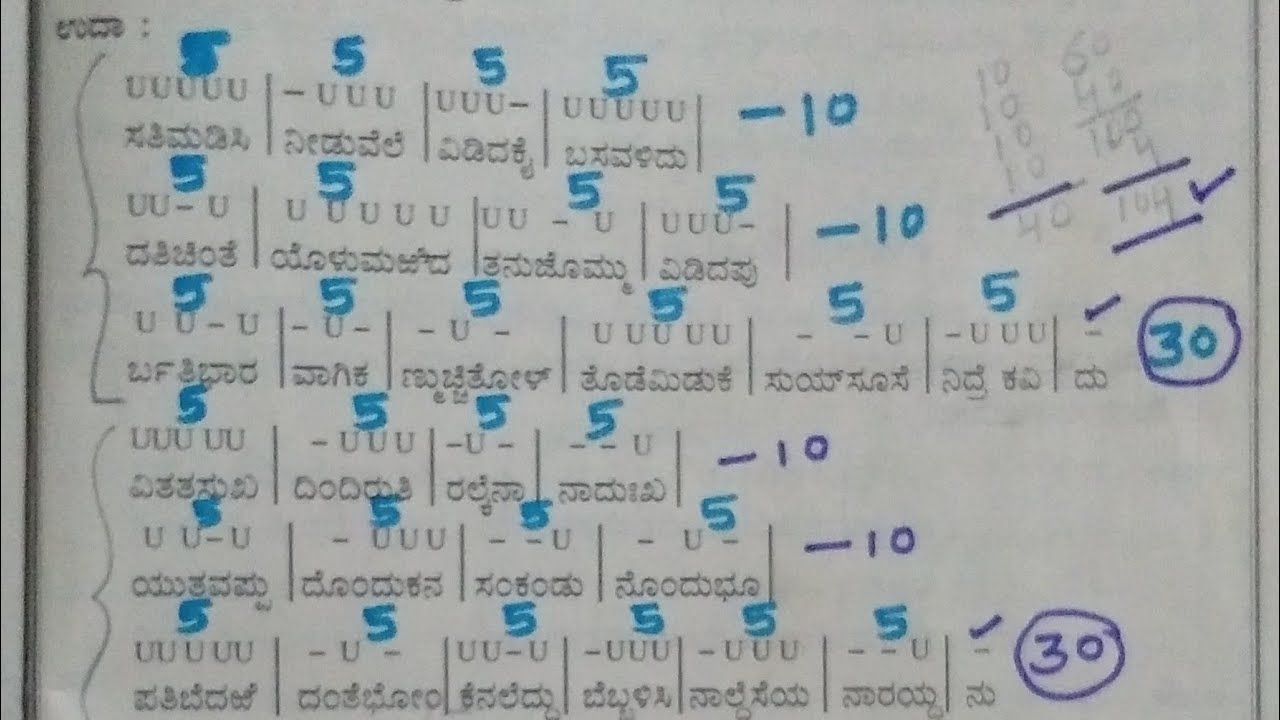 ಉದಾ :
5 5 5 5
UUUUU | – U U U | UUU– | UUUUU | – 10
ಸತಿಮಡಿಸಿ | ನೀಡುವೆಲೆ | ವಿಡಿದಕೈ | ಬಸವಳಿದು |
5 5 5 5
UU– U | U U U U U | UU – U | UUU– | – 10
ದತಿಚಿಂತೆ | ಯೊಳುಮಱೆದ | ತನುಜೊಮ್ಮು | ವಿಡಿದಪು |
5 5 5 5 5 5
U U – U | – U – | – U – | U UU UU | – – U | –UUU | – 30
ರ್ಬತಿಭಾರ | ವಾಗಿಕ | ಣ್ಮುಚ್ಚಿತೋಳ್ | ತೊಡೆಮಿಡುಕೆ | ಸುಯ್‌ಸೂಸೆ | ನಿದ್ರೆ ಕವಿ | ದು
5 5 5 5
UUU UU | – UUU | –U – | – – U | – 10
ವಿತತಸುಖ | ದಿಂದಿರುತಿ | ರಲ್ಕೆನಾ | ನಾದುಃಖ |
5 5 5 5
U U–U | – UUU | – –U | – U – | – 10
ಯುತವಪ್ಪು | ದೊಂದುಕನ | ಸಂಕಂಡು | ನೊಂದುಭೂ |
5 5 5 5 5 5
UUU UU | – U – | UU–U | –UUU | –UUU | – –U | – 30
ಪತಿಬೆದಱೆ | ದಂತೆಭೋಂ | ಕೆನಲೆದ್ದು | ಬೆಬ್ಬಳಿಸಿ | ನಾಲ್ದೆಸೆಯ | ನಾರಯ್ದ | ನು
10
10
10
10
40
60
104
104